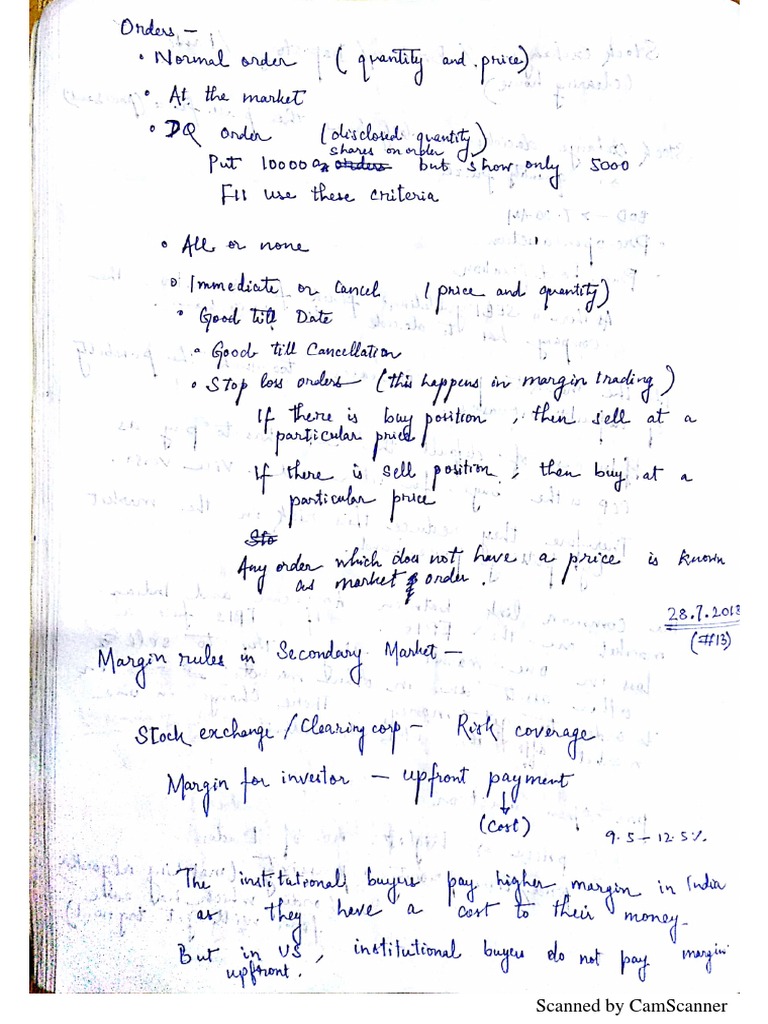 Orders –
• Normal order (quantity and price)
• At the market
• DQ order (disclosed quantity)
shares on order
Put 10000 orders but show only 5000
FII use these criteria
• All or none
• Immediate or Cancel (price and quantity)
• Good till Date
• Good till Cancellation
• Stop loss orders (this happens in margin trading)
If there is buy position, then sell at a
particular price
If there is sell position, then buy at a
particular price
Sto
Any order which does not have a price is known
as market order.
28.7.2018
(#13)
Margin rules in Secondary Market –
Stock exchange / Clearing corp – Risk coverage
Margin for investor – upfront payment
↓
(Cost)
9.5 – 12.5%
The institutional buyers pay higher margin in India
as they have a cost to their money.
But in US, institutional buyers do not pay margin
upfront.
Scanned by CamScanner